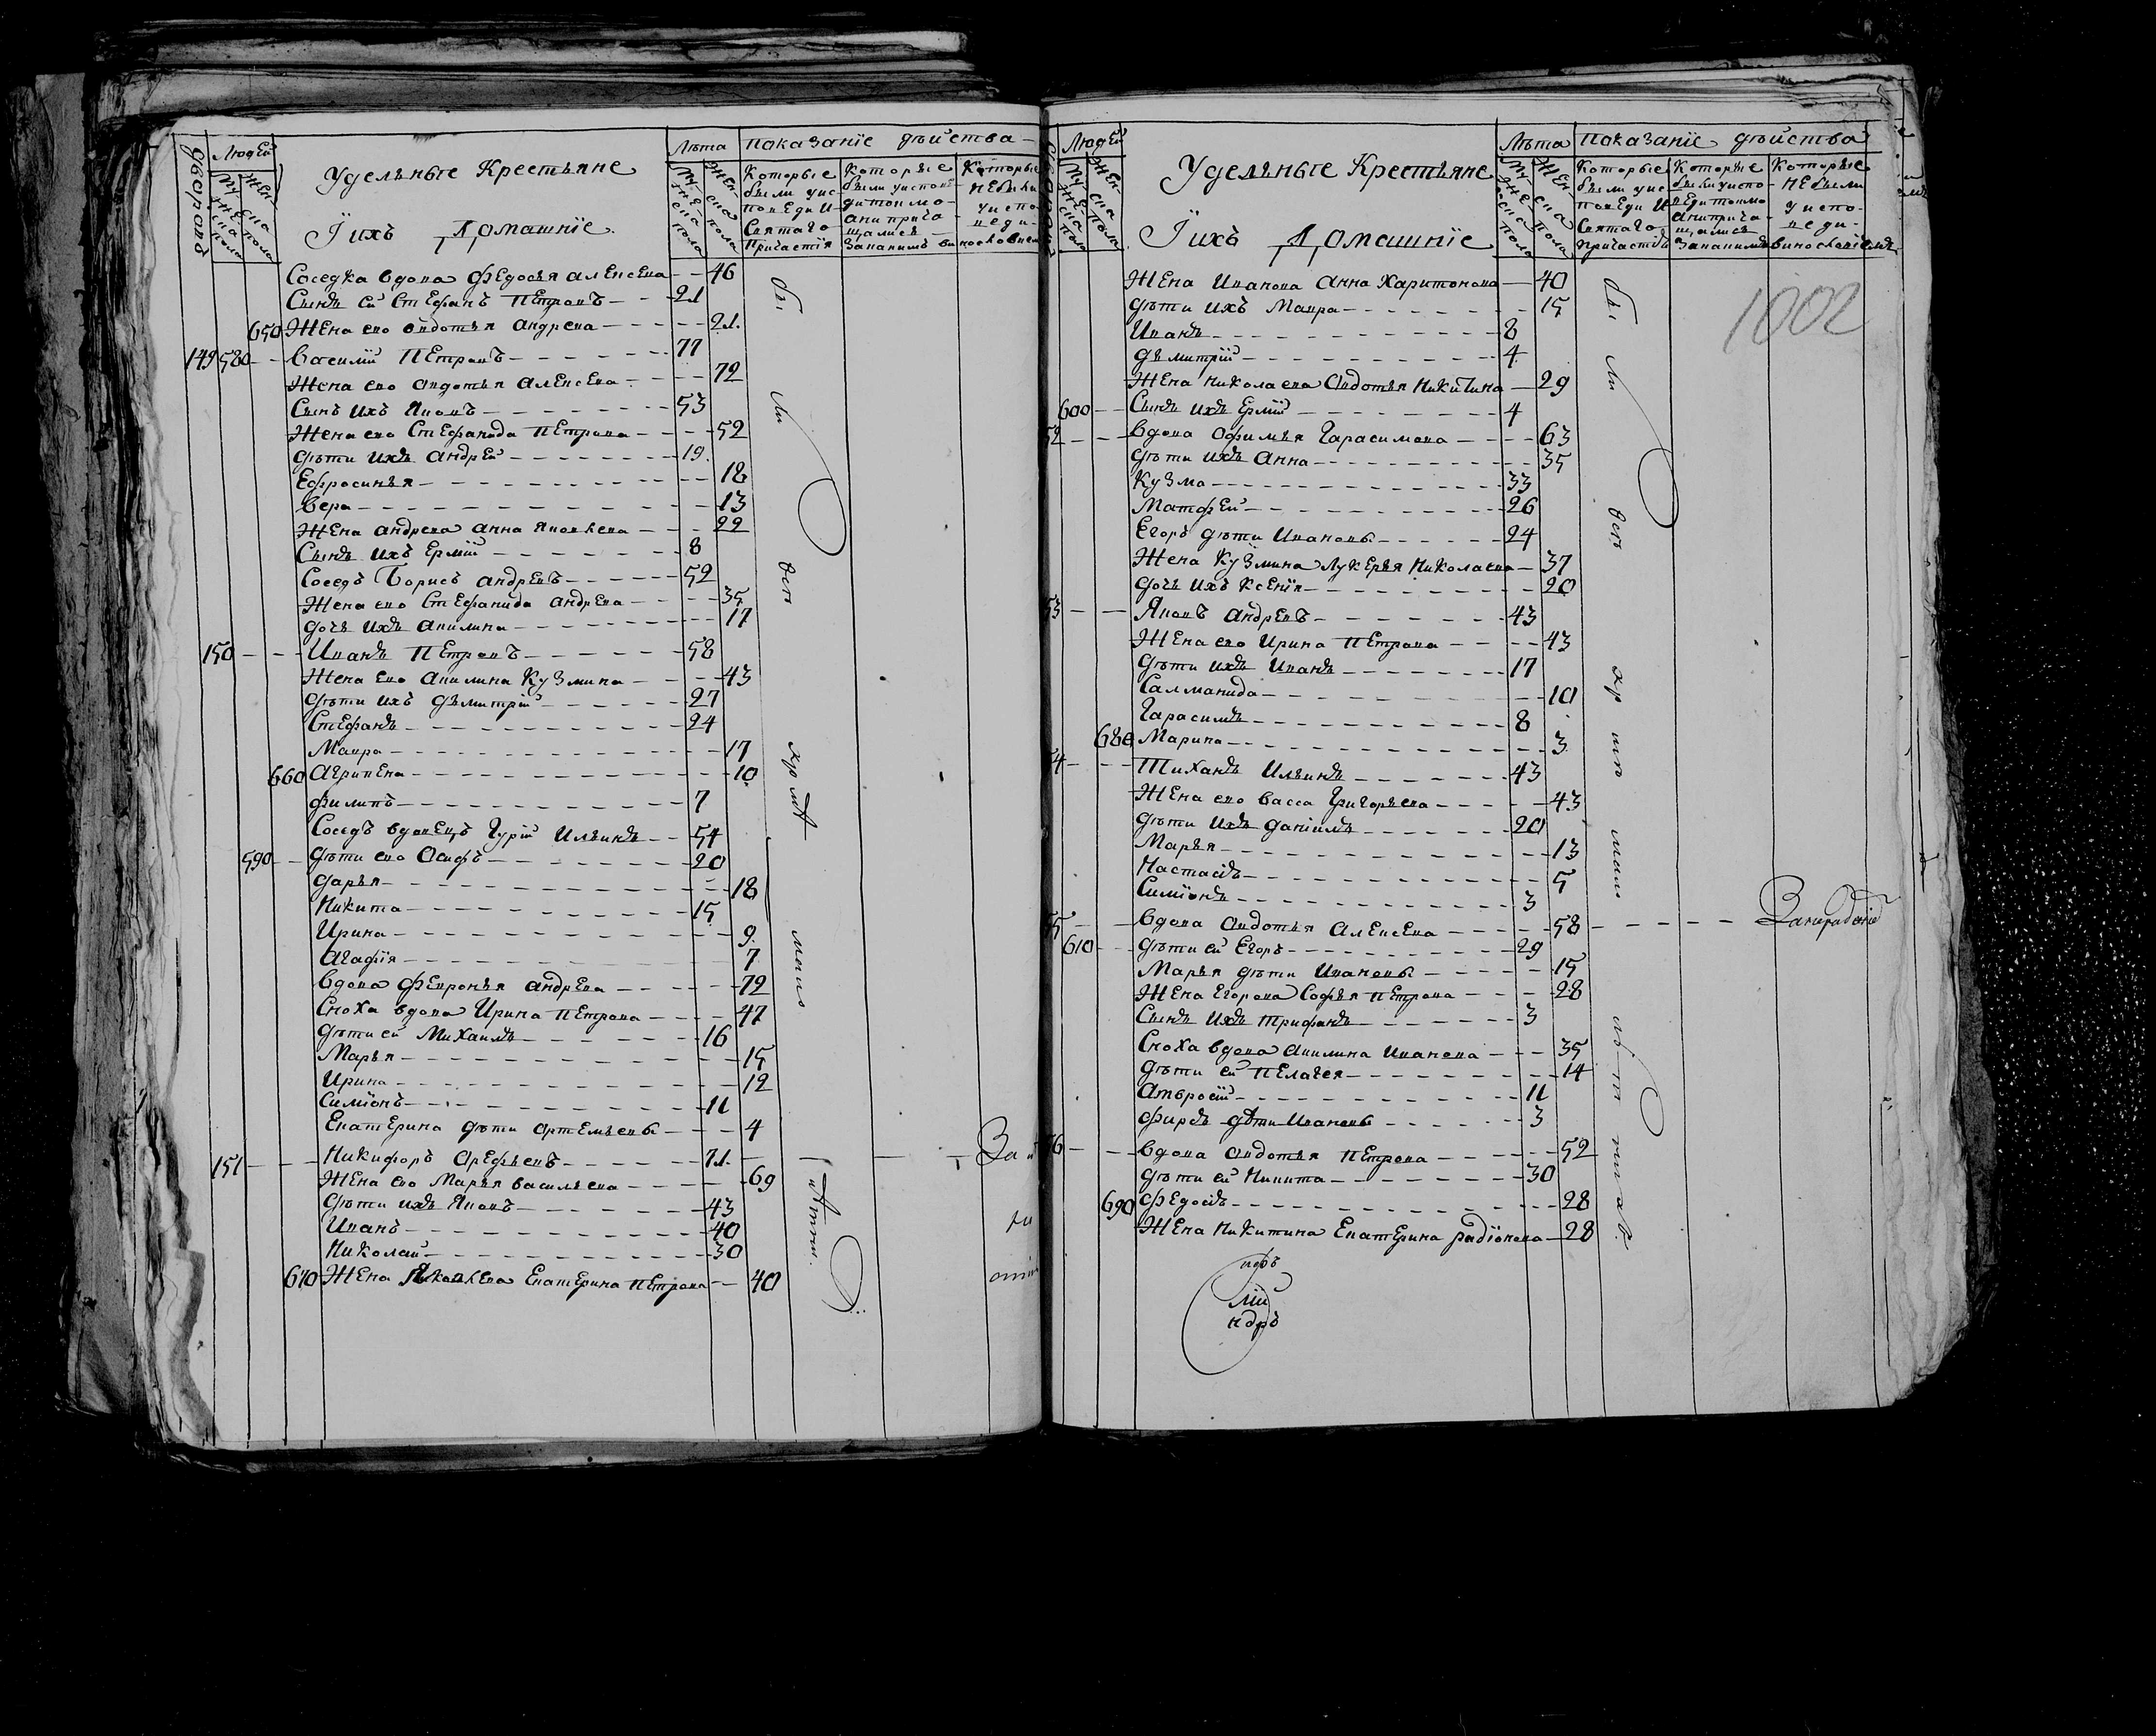 Дворовъ
Людей
Мужеска пола
Женска пола
Удельные Крестьяне
Їихъ Домашнїе
Лѣта
Мужеска пола
Женска пола
показанїе дѣйства
Которые были у исповеди и Святаго Причастїя
Которые были у исповеди токмо а не причащались
Которые не были у исповеди
Соседка вдова Федосья алексева 46
Сынъ ей Стефанъ Петровъ 21
650 Жена ево овдотья андрева 21
149 580 Василий Петровъ 77
Жена ево авдотья алексева 72
Сынъ ихъ Яковъ 53
Жена ево Стефанида Петрова 52
Дѣти ихъ андрей 19
Ефросинья 18
Вера 13
Жена андрева анна Яковлева 22
Сынъ ихъ Ермїй 8
Соседъ Борисъ андревъ 52
Жена ево Стефанида андрева 35
Дочь ихъ акилина 17
150 Иванъ Петровъ 58
Жена ево акилина Кузмина 43
Дѣти ихъ дьмитрїй 27
Стефанъ 24
Мавра 17
660 Агрипена 10
Филипъ 7
Соседъ вдовецъ Гурїй Ильинъ 54
590 Дѣти ево Осифъ 20
Дарья 18
Никита 15
Ирина 9
Агафїя 7
Вдова Февронья андрева 72
Сноха вдова Ирина Петрова 47
Дѣти ей Михаилъ 16
Марья 15
Ирина 12
Симїонъ 11
Екатерина дѣти артемьевы 4
151 Никифоръ Арефьевъ 71
Жена ево Марья васильева 69
Дѣти ихъ Яковъ 43
Иванъ 40
Николай 30
670 Жена Яковлева Екатерина Петрова 40
бы
ли
вси
Людей
Мужеска пола
Женска пола
Удельные Крестьяне
Їихъ Домашнїе
Лѣта
Мужеска пола
Женска пола
показанїе дѣйства
Которые были у исповеди и Святаго причастїя
Которые были у исповеди токмо а не причащались
Которые не были у исповеди
1002
Жена Иванова анна Харитонова 40
Дѣти ихъ Мавра 15
Иванъ 8
Дьмитрїй 4
Жена Николаева авдотья Никитина 29
600 Сынъ ихъ Ермїй 4
52 Вдова Офимья Гарасимова 63
Дѣти ихъ анна 35
Кузма 33
Матфей 26
Егоръ дѣти Ивановы 24
Жена Кузмина Лукерья Николаева 37
Дочь ихъ Ксенїя 20
53 Яковъ андревъ 43
Жена ево Ирина Петрова 43
Дѣти ихъ Иванъ 17
Салманида 10
Гарасимъ 8
680 Марина 3
54 Тиханъ Ильинъ 43
Жена ево Васса Григорьева 43
Дѣти ихъ данїилъ 20
Марья 13
Настасїя 5
Симїонъ 3
55 Вдова авдотья алексева 58
610 Дѣти ей Егоръ 29
Марья дѣти Ивановы 15
Жена Егорова Софья Петрова 28
Сынъ ихъ трифанъ 3
Сноха вдова акилина Иванова 35
Дѣти ей Пелагея 14
Амвросїй 11
Фирсъ дѣти Ивановы 3
56 Вдова авдотья Петрова 52
Дѣти ей Никита 30
690 Федосїя 28
Жена Никитина Екатерина радїонова 28
бы
ли
вси